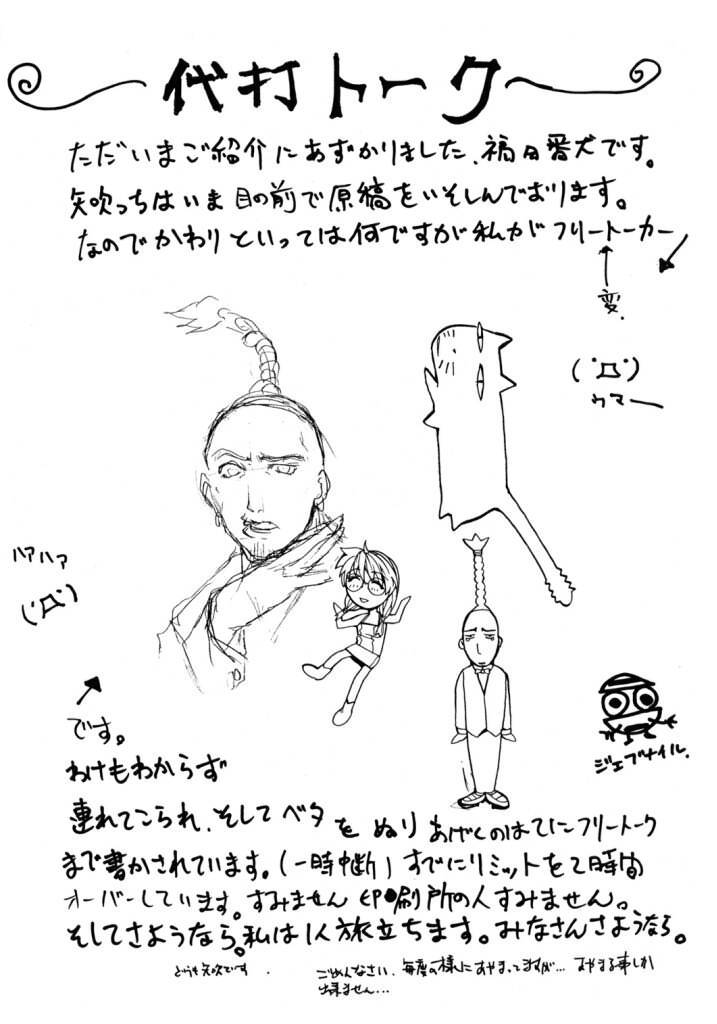 代打トーク
ただいまご紹介にあずかりました、禍日番犬です。
矢吹っちはいま目の前で原稿をいそしんでおります。
なのでかわりといっては何ですが私がフリートーカー
変。
(゚Д゚)
ウマー
ハアハア
(゚Д゚)
です。
わけもわからず
ジェブナイル.
連れてこられ、そしてベタをぬりあげくのはてにフリートーク
まで書かされています。(一時中断)すでにリミットを2時間
オーバーしています。すみません印刷所の人すみません。
そしてさようなら。私は1人旅立ちます。みなさんさようなら。
どうも矢吹です.
ごめんなさい.毎度の様にあやまってますが…あやまる事しか
出来ません…